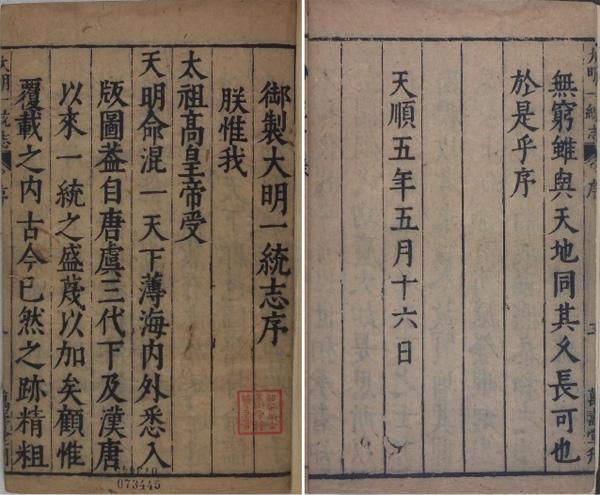 御製大明一統志序
朕惟我
太祖高皇帝受
天明命混一天下薄海內外悉入
版圖葢自唐虞三代下及漢唐
以來一統之盛蔑以加矣顧惟
覆載之內古今已然之跡精粗
大明一統志
序
一
073445
大明一統志
序
三
萬壽堂刊
無窮雖與天地同其久長可也
於是乎序
天順五年五月十六日